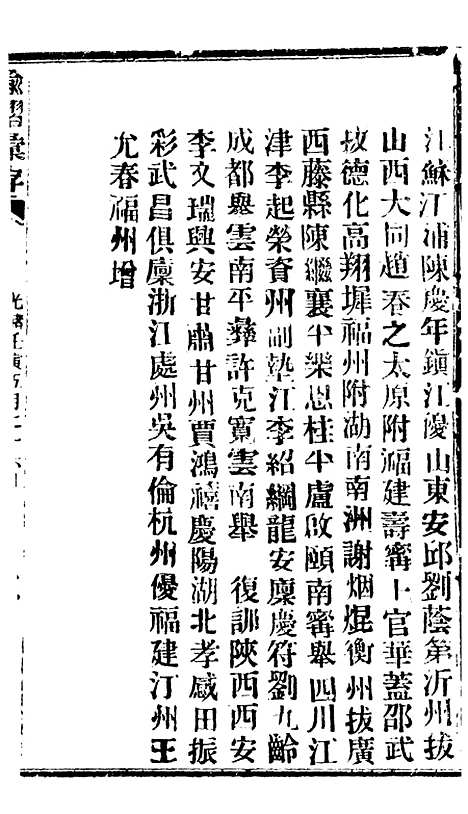 江蘇江浦陳慶年鎮江優山東安邱劉蔭第沂州拔
山西大同趙春之太原附福建壽寧上官華蓋邵武
拔德化高翔墀福州附湖南南洲謝烟焜衡州拔廣
西藤縣陳繼襄平樂恩桂平盧啟頤南寧舉四川江
津李起榮資州副墊江李紹綱龍安廩慶符劉九齡
成都舉雲南平彝許克寬雲南舉 復訓陝西西安
李文瑞興安甘肅甘州賈鴻禧慶陽湖北孝感田振
彩武昌俱廩浙江處州吳有倫杭州優福建汀州王
尤春福州增
諭摺彙存
光緒壬寅五月二十六日